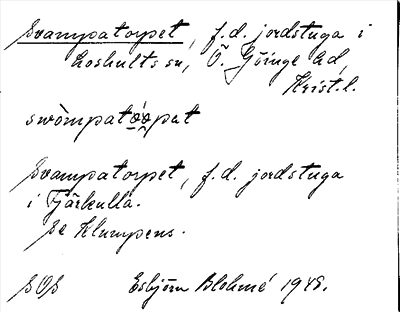 Svampatorpet, f.d. jordstuga i
Loshults sn, Ö. Göinge hd,
Krist. l.
swòmpatò̤ò̤pat
Svampatorpet, f.d. jordstuga
i Tjärkulla.
Se Klumpens.
SOS Esbjörn Blohmé 1948.